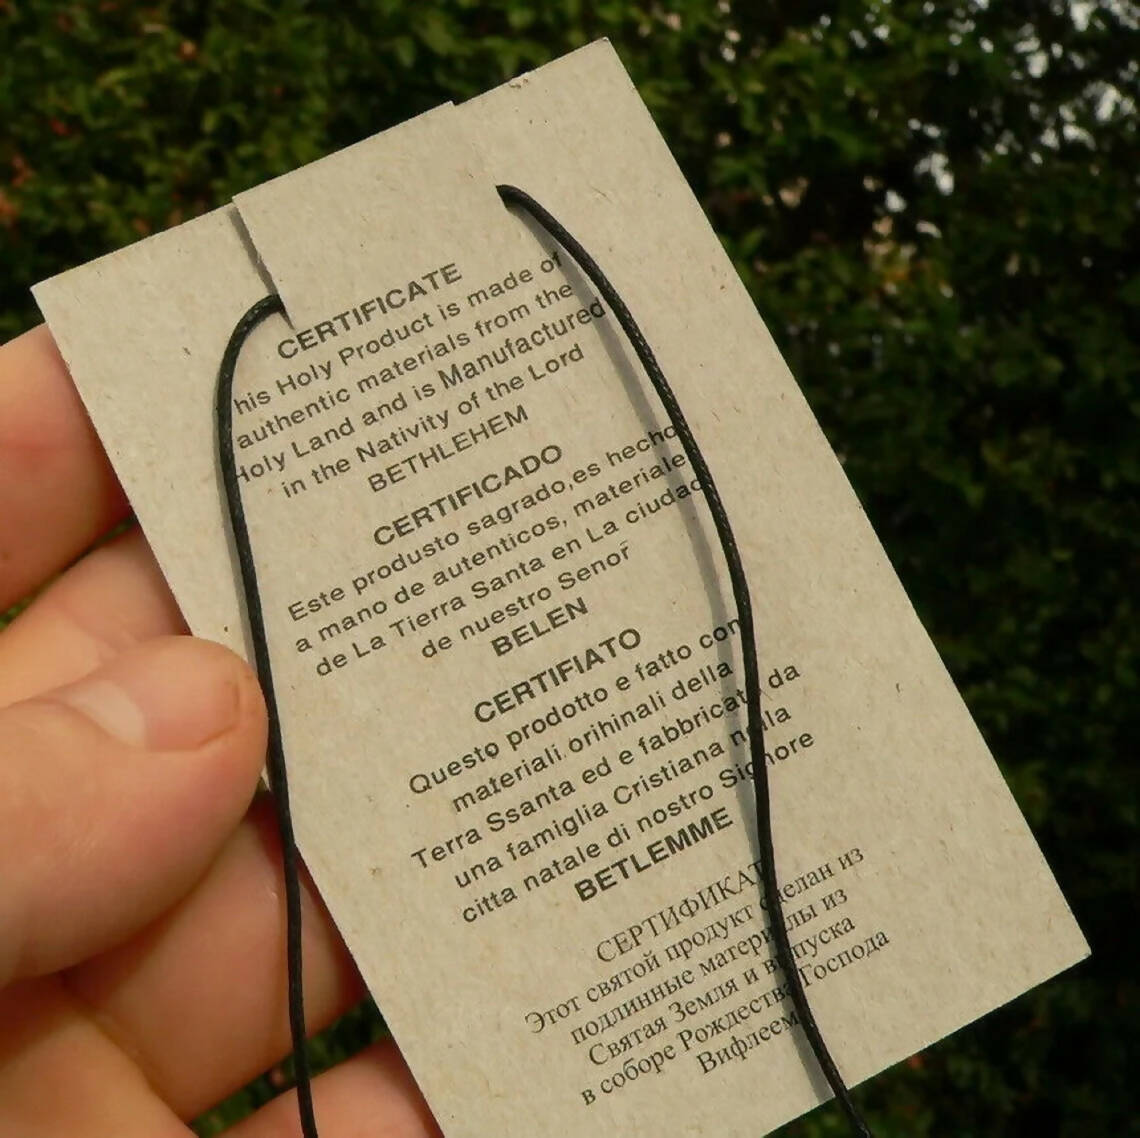 CERTIFICATE
his Holy Product is made of
authentic materials from the
Holy Land and is Manufactured
in the Nativity of the Lord
BETHLEHEM
CERTIFICADO
Este produsto sagrado,es hecho
a mano de autenticos, materiale
de La Tierra Santa en La ciudad
de nuestro Senor
BELEN
CERTIFIATO
Questo prodotto e fatto con
materiali orihinali della
Terra Ssanta ed e fabbricata da
una famiglia Cristiana nella
citta natale di nostro Signore
BETLEMME
СЕРТИФИКАТ
Этот святой продукт сделан из
подлинные материалы из
Святая Земля и выпуска
в соборе Рождества Господа
Вифлеем